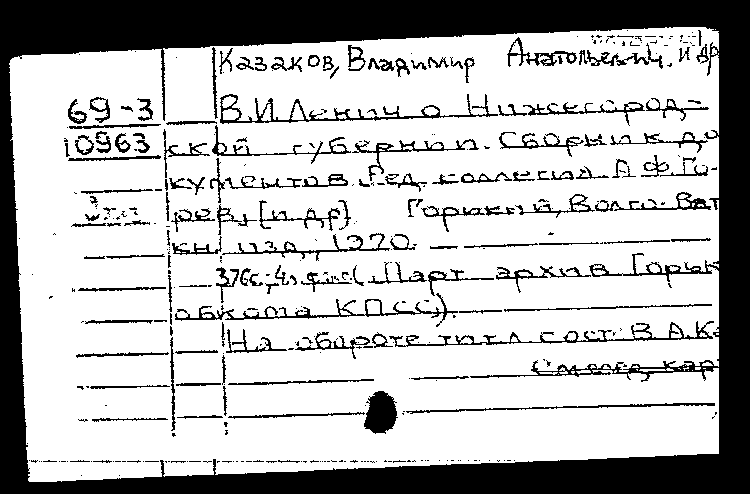 Казаков, Владимир Анатольевич. и др
69-3 В.И.Ленин о Нижегород-
10963 ской губернии. Сборник до
кументов. Ред. коллегия А.Ф. Го-
рев, [и др]. Горький, Волго-Вят
кн. изд., 1970.
376с; (Парт. архив Горьк
обкома КПСС).
На обороте титл. сост. В.А.Ка